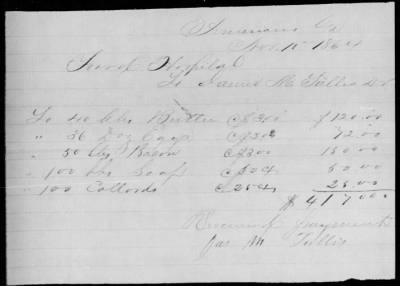 Americus Ga
Nov 15 1864
Hospital
To James M Tullis Dr
To 40 lbs Butter @ $3.00 $120.00
" 36 Doz Eggs @ $2.00 72.00
" 50 lbs Bacon @ $3.00 150.00
" 100 lbs @ 50¢ 50.00
" 100 Collords @ 25¢ 25.00
$417.00
Received payment
Jas M Tullis